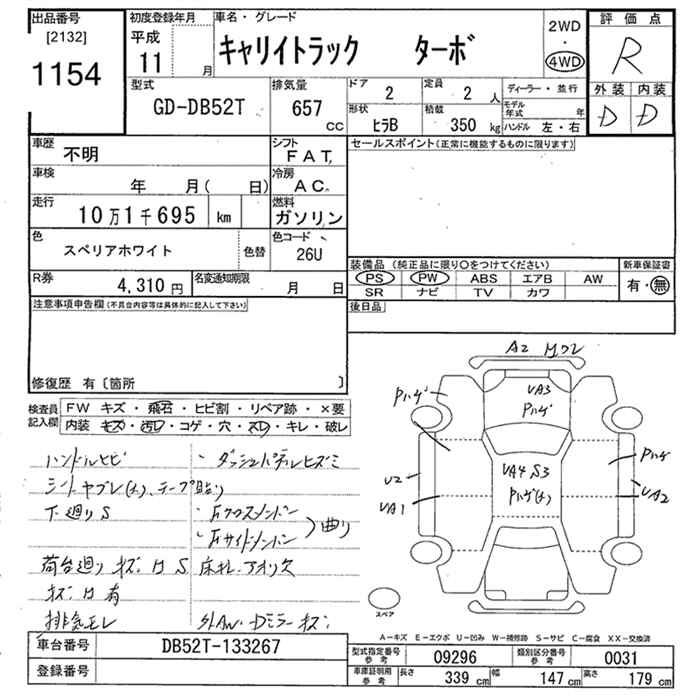 出品番号
[2132]
1154
初度登録年月
平成
11 月
車名・グレード
キャリイトラック ターボ
2WD
・
4WD
評価点
R
外装 内装
D D
型式
GD-DB52T
排気量
657 CC
ドア
2
定員
2 人
形状
ヒラB
積載
350 kg
ディーラー・並行
モデル年式 年
ハンドル 左・右
車歴
不明
シフト
FAT,
セールスポイント(正常に機能するものに限ります)
車検
年 月( 日)
冷房
AC.
走行
10万1千695 km
燃料
ガソリン
色
スペリアホワイト
色替
色コード
26U
装備品 (純正品に限り○をつけてください)
新車保証書
PS PW ABS エアB AW
SR ナビ TV カワ
有・無
R券
4,310 円
名変通知期限
月 日
後日品
注意事項申告欄(不具合内容等は具体的に記入して下さい)
修復歴 有〔箇所 〕
検査員記入欄
FW キズ・飛石・ヒビ割・リペア跡・×要
内装 キズ・汚レ・コゲ・穴・スレ・キレ・破レ
ハンドルヒビ ・ダッシュパネルヒズミ
シートヤブレ(大)、テープ貼り
下廻りS
荷台廻り キズ凹S 床サレ アオリ欠
キズ凹有
排気モレ 社外AW・Dミラーキズ
曲り
A2
Pハゲ
VA3
Pハゲ
VA4 S3
Pハゲ(大)
U2
VA1
Pハゲ
VA2
スペア
A-キズ E-エクボ U-凹み W-補修跡 S-サビ C-腐食 XX-交換済
車台番号
DB52T-133267
登録番号
型式指定番号 参考
09296
類別区分番号 参考
0031
車庫証明用 参考
長さ 339 cm 幅 147 cm 高さ 179 cm